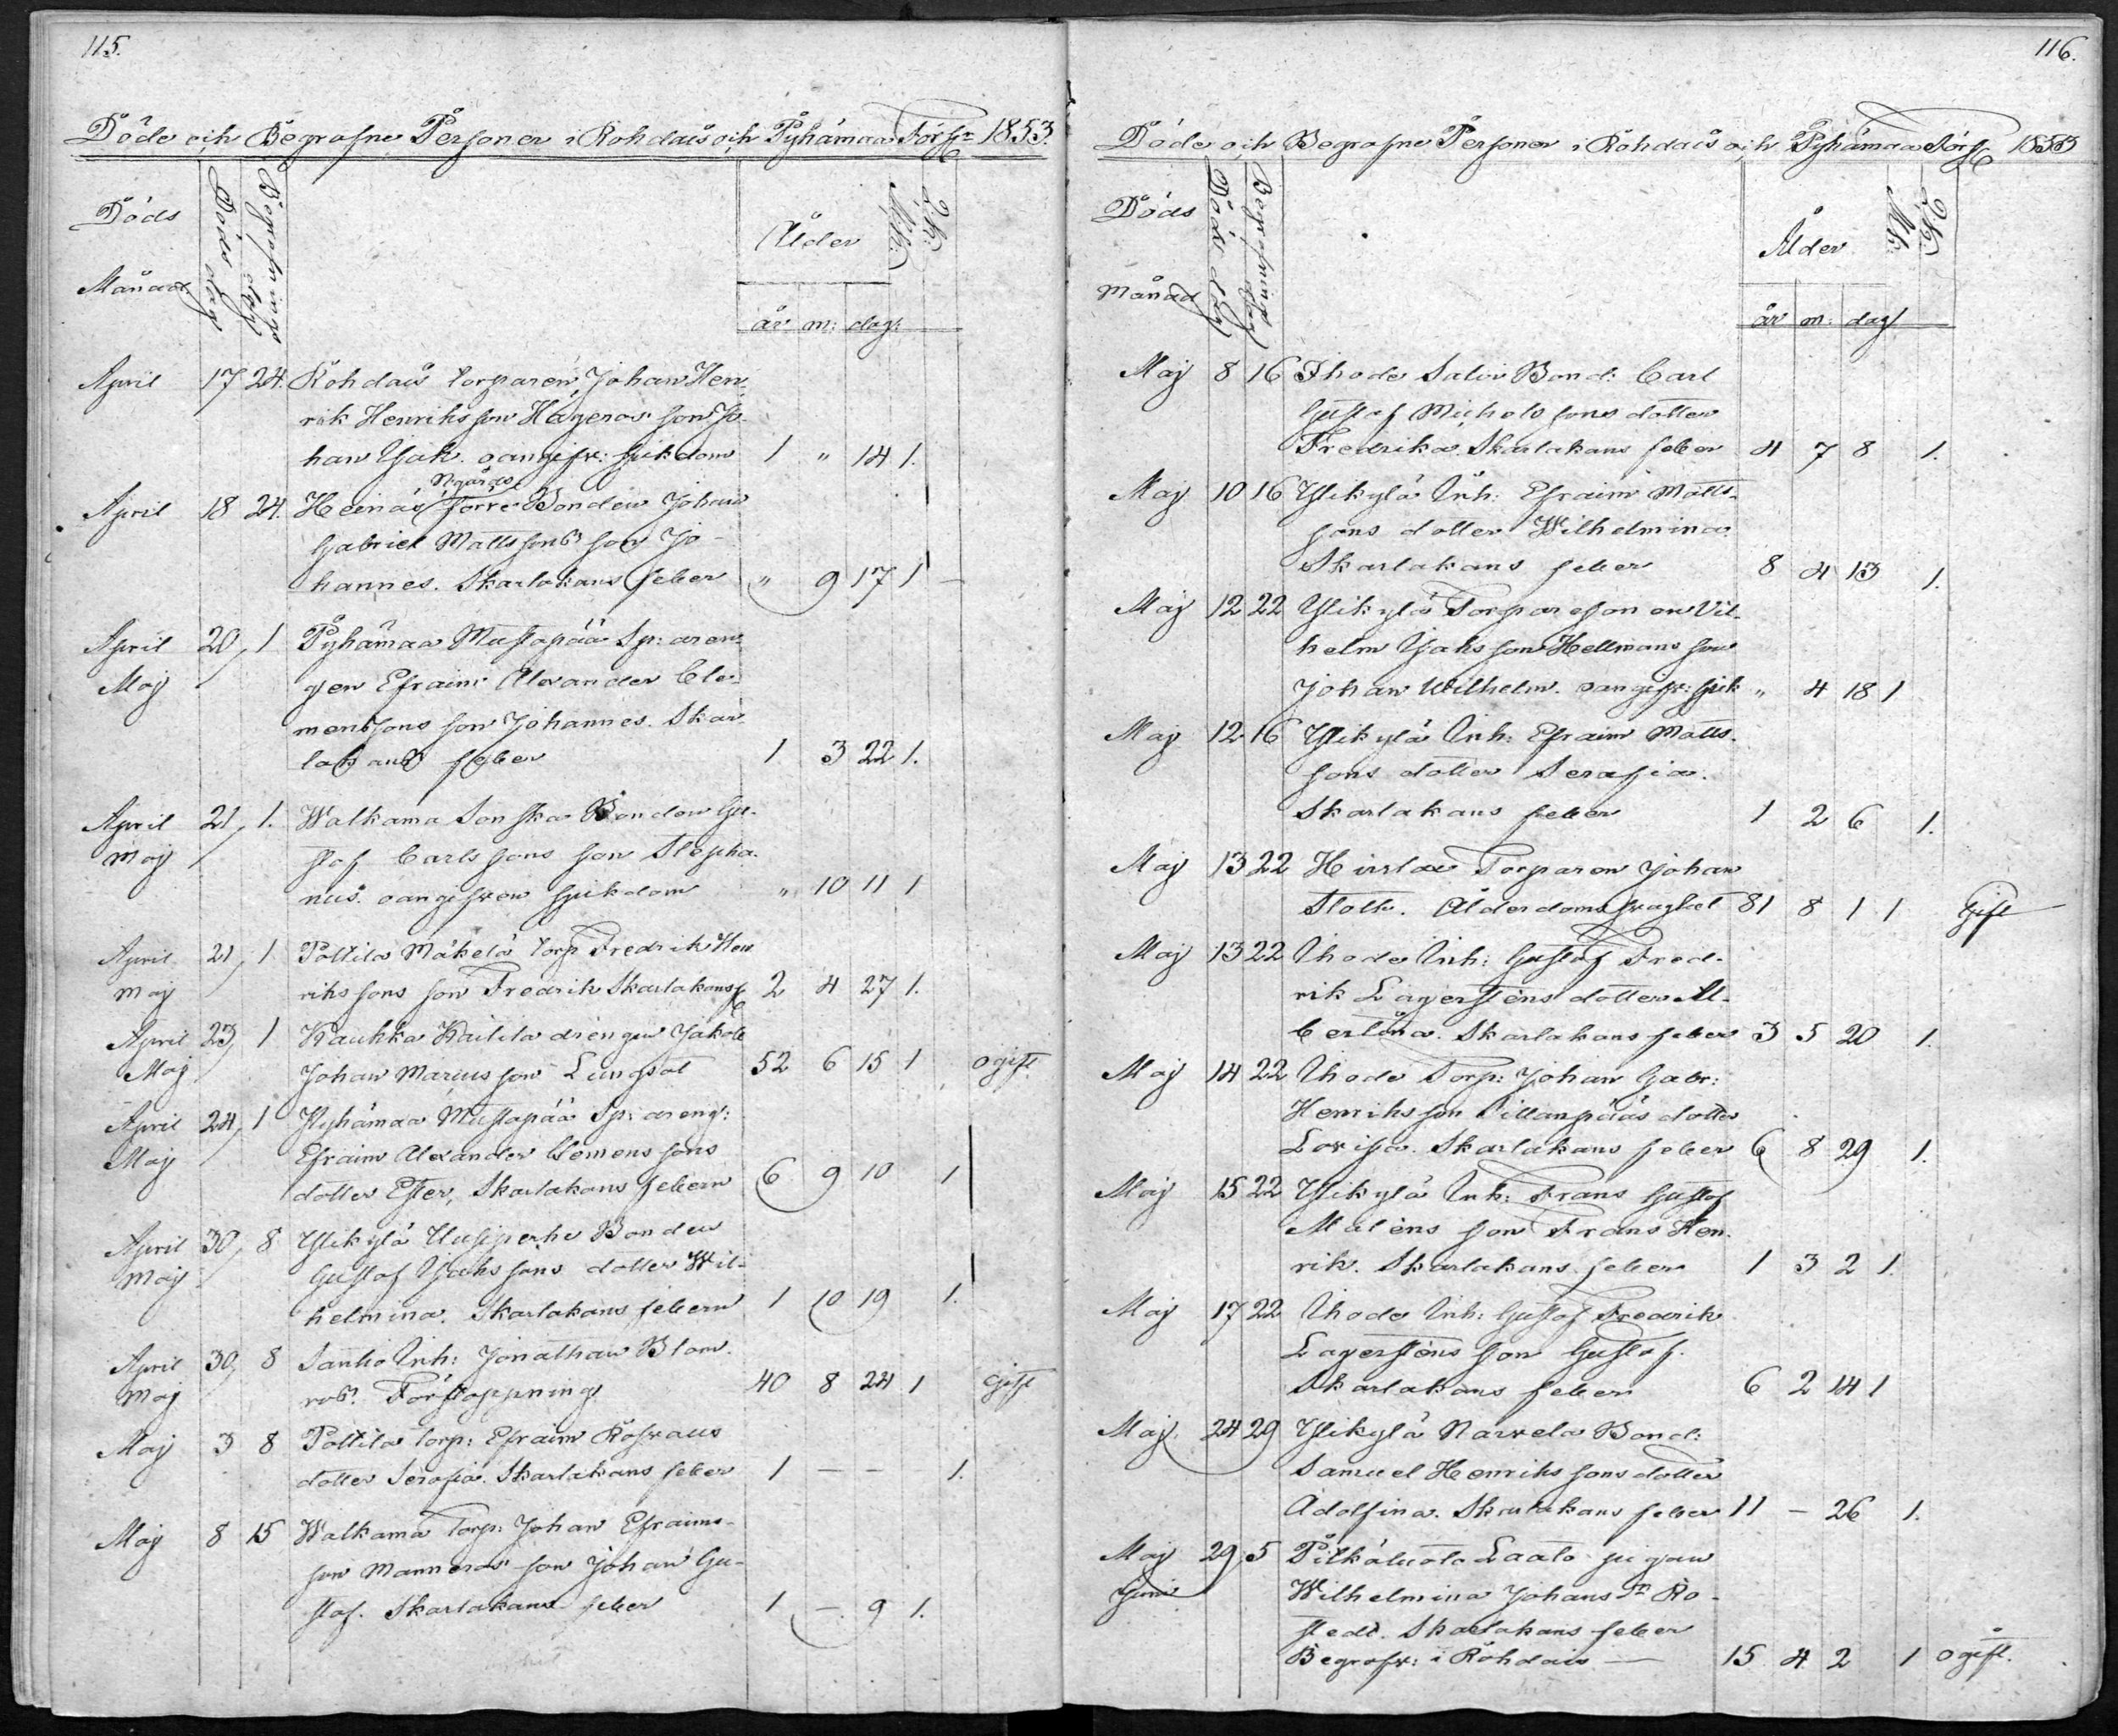 115.
Döde och Begrafne Personer i Rohdais och Pyhämaa Förs:r 1853.
Döds Månad
Döds dag
Begrafnings dag
Ålder
Mk:
Qk:
år m: dag:
April 17 24. Rohdais torparen Johan Hen-
rik Henriksson Hageros son Jo-
han Isak. oangifv: sjukdom 1 " 14 1.
Norrgårds
April 18 24. Heinäs förre Bonden Johan
Gabriel Mattssons son Jo-
hannes. Skarlakans feber " 9 17 1
April 20, 1 Pyhämaa Mustapää Sp: aren-
Maj gen Efraim Alexander Cle-
mentsons son Johannes. Skar-
lakans feber 1 3 22 1.
April 21, 1. Walkama Sonska Bonden Gu-
Maj staf Carlssons son Stepha-
nus. oangifven sjukdom " 10 11 1
April 21, 1 Pottila Mäkelä torp Fredrik Hen
Maj rikssons son Fredrik Skarlakansf 2 4 27 1.
April 23, 1 Kaukka Kaitila drengen Jakob
Maj Johan Mariusson Lungsot 52 6 15 1 ogift
April 24, 1 Pyhämaa Mustapää Sp: areng:
Maj Efraim Alexander Clemenssons
dotter Ester, Skarlakans febern 6 9 10 1
April 30, 8 Ylikylä Uusiperhe Bonden
Maj Gustaf Isakssons dotter Wil-
helmina. Skarlakans febern 1 10 19 1.
April 30, 8 Santio Inh: Jonathan Blom-
Maj ros. Förstoppning 40 8 24 1 Gift
Maj 3 8 Pottila torp: Efraim Rosvaus
dotter Serafia. Skarlakans feber 1 — — 1.
Maj 8 15 Walkama Torp: Johan Efraims-
son Manneros son Johan Gu-
staf. Skarlakans feber 1 — 9 1.
116.
Döde och Begrafne Personer i Rohdais och Pyhämaa Förs 1853
Döds Månad
Döds dag
Begrafnings dag
Ålder
Mk:
Qk:
år m: dag
Maj 8 16 Ihode Salin Bond: Carl
Gustaf Michelssons dotter
Fredrika. Skarlakans feber 4 7 8 1.
Maj 10 16 Ylikylä Inh: Efraim Matts-
sons dotter Wilhelmina
Skarlakans feber 8 4 13 1.
Maj 12 22 Ylikylä Torparesonen Vil-
helm Isaksson Hellmans son
Johan Wilhelm. oangifv: sjuk " 4 18 1
Maj 12 16 Ylikylä Inh: Efraim Matts-
sons dotter Serafia.
Skarlakans feber 1 2 6 1.
Maj 13 22 Hirslax Torparen Johan
Stolt. Ålderdomssvaghet 81 8 1 1 Gift
Maj 13 22 Ihode Inh: Gustaf Fred-
rik Lagersténs dotter Al-
bertina. Skarlakans feber 3 5 20 1.
Maj 14 22 Ihode Torp: Johan Gabr:
Henriksson Sillanpääs dotter
Lovisa. Skarlakans feber 6 8 29 1.
Maj 15 22 Ylikylä Inh: Frans Gustaf
Maléns son Frans Hen-
rik. Skarlakans feber 1 3 2 1.
Maj 17 22 Ihode Inh: Gustaf Fredrik
Lagersténs son Gustaf.
Skarlakans feber 6 2 14 1
Maj 24 29 Ylikylä Narvela Bond:
Samuel Henrikssons dotter
Adolfina. Skarlakans feber 11 — 26 1.
Maj 29, 5 Pitkäluoto Laato pigan
Juni Wilhelmina Johansr Ro-
stedt. Skarlakans feber
Begrafv: i Rohdais — 15 4 2 1 ogift.